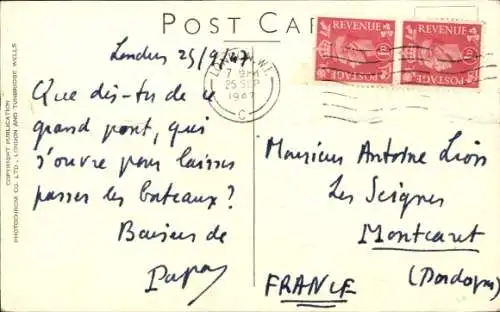 POST CAR
COPYRIGHT PUBLICATION
PHOTOCHROM CO. LTD., LONDON AND TUNBRIDGE WELLS
Londres 25/9/47
Que dis-tu de ce
grand pont, qui
s'ouvre pour laisser
passer les bateaux?
Baisers de
Papa
LONDON. W.1.
7 PM
25 SEP
1947
C
REVENUE
POSTAGE
REVENUE
POSTAGE
Monsieur Antoine
Les Seignes
Montcaret
(Dordogne)
FRANCE